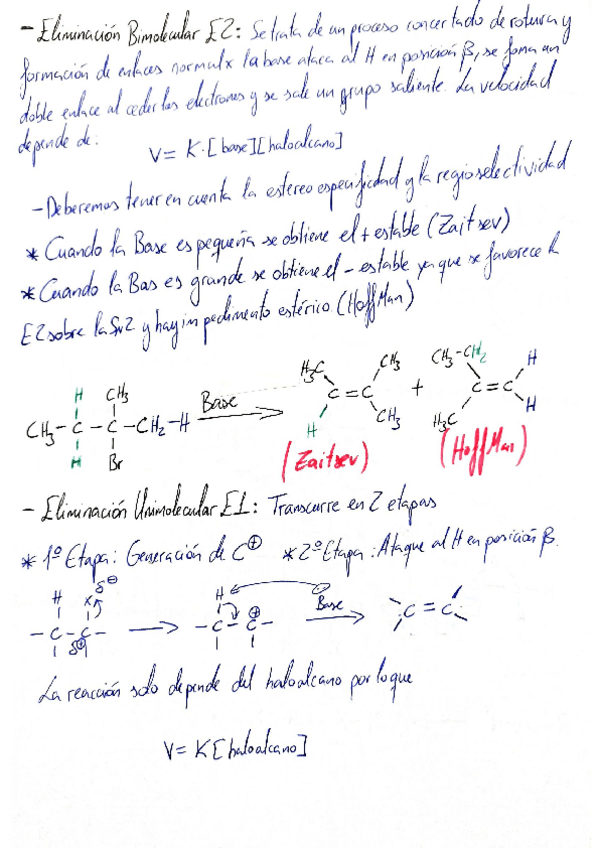 - Eliminación Bimolecular E2: Se trata de un proceso concertado de rotura y
formación de enlaces normalx la base ataca al H en posición β, se forma un
doble enlace al ceder los electrones y se sale un grupo saliente La velocidad
depende de:
V = K·[base][haloalcano]
- Deberemos tener en cuenta la estereoespecificidad y la regioselectividad
* Cuando la Base es pequeña se obtiene el + estable (Zaitsev)
* Cuando la Bas es grande se obtiene el - estable ya que se favorece la
E2 sobre la SN2 y hay impedimento estérico (HoffMan)
H CH3 H3C CH3 CH3-CH2 H
CH3 - C - C - CH2 - H Base C = C + C = C
H Br H CH3 H3C H
(Zaitsev) (HoffMan)
- Eliminación Unimolecular E1: Transcurre en 2 etapas
* 1º Etapa: Generación de C⊕ * 2º Etapa: Ataque al H en posición β.
H X δ⊖ H ⊕ Base
- C - C - - C - C - C = C
δ⊕
La reacción solo depende del haloalcano por lo que
V = K[haloalcano]